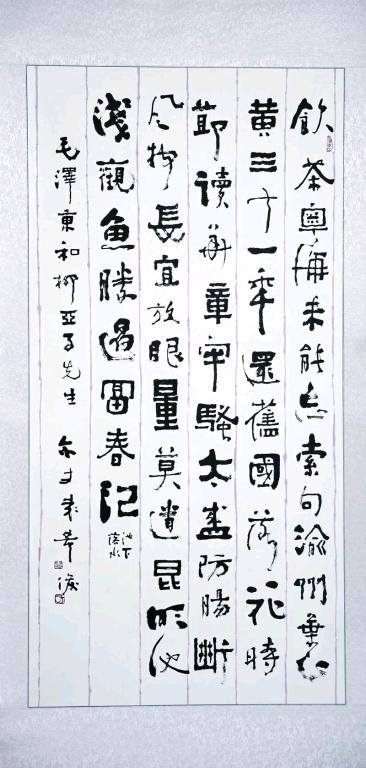 飲茶粵海未能忘索句渝州葉正
黃三十一年還舊國落花時
節讀華章牢騷太盛防腸斷
風物長宜放眼量莫道昆明池
淺觀魚勝過富春江
池下
落水
毛澤東和柳亞子先生